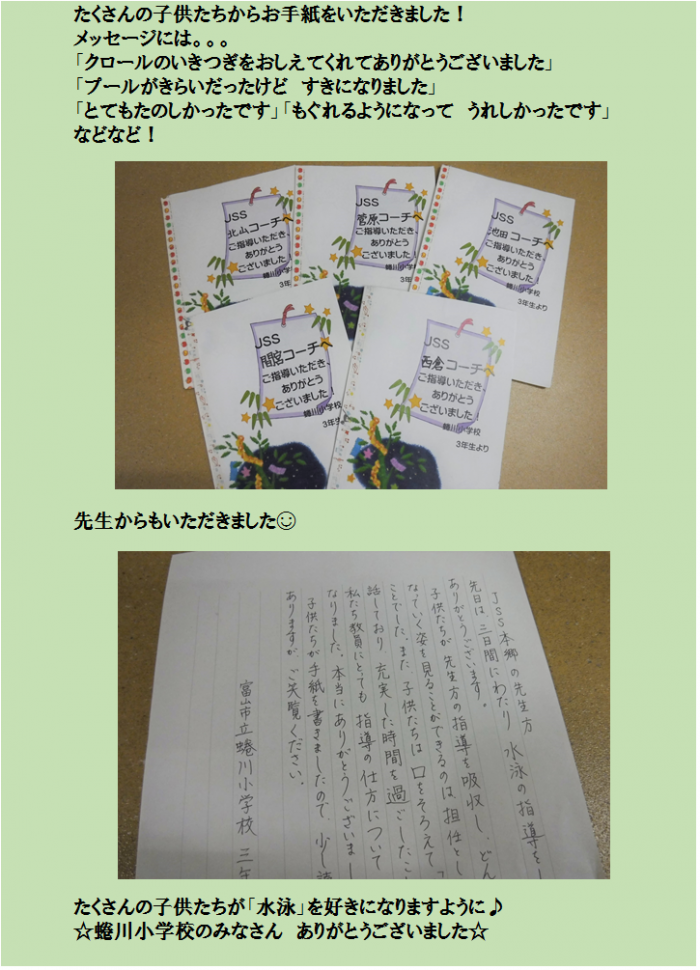 たくさんの子供たちからお手紙をいただきました！
メッセージには。。。
「クロールのいきつぎをおしえてくれてありがとうございました」
「プールがきらいだったけど　すきになりました」
「とてもたのしかったです」「もぐれるようになって　うれしかったです」
などなど！
JSS
北山コーチへ
ご指導いただき、
ありがとう
ございました！
蜷川小学校
3年生より
JSS
菅原コーチへ
ご指導いただき、
ありがとう
ございました！
蜷川小学校
3年生より
JSS
池田コーチへ
ご指導いただき、
ありがとう
ございました！
蜷川小学校
3年生より
JSS
間宮コーチへ
ご指導いただき、
ありがとう
ございました！
蜷川小学校
3年生より
JSS
西倉コーチへ
ご指導いただき、
ありがとう
ございました！
蜷川小学校
3年生より
先生からもいただきました☺
JSS本郷の先生方
先日は三日間にわたり　水泳の指導を
ありがとうございます。
子供たちが　先生方の指導を吸収し、どん
なっていく姿を見ることができるのは　担任とし
ことでした。また　子供たちは　口をそろえて「
話しており　充実した時間を過ごしたこ
私たち教員にとても　指導の仕方について
なりました。本当にありがとうございまし
子供たちが手紙を書きましたので、少し
ありますが　ご笑覧ください。
富山市立蜷川小学校　三年
たくさんの子供たちが「水泳」を好きになりますように♪
☆蜷川小学校のみなさん　ありがとうございました☆